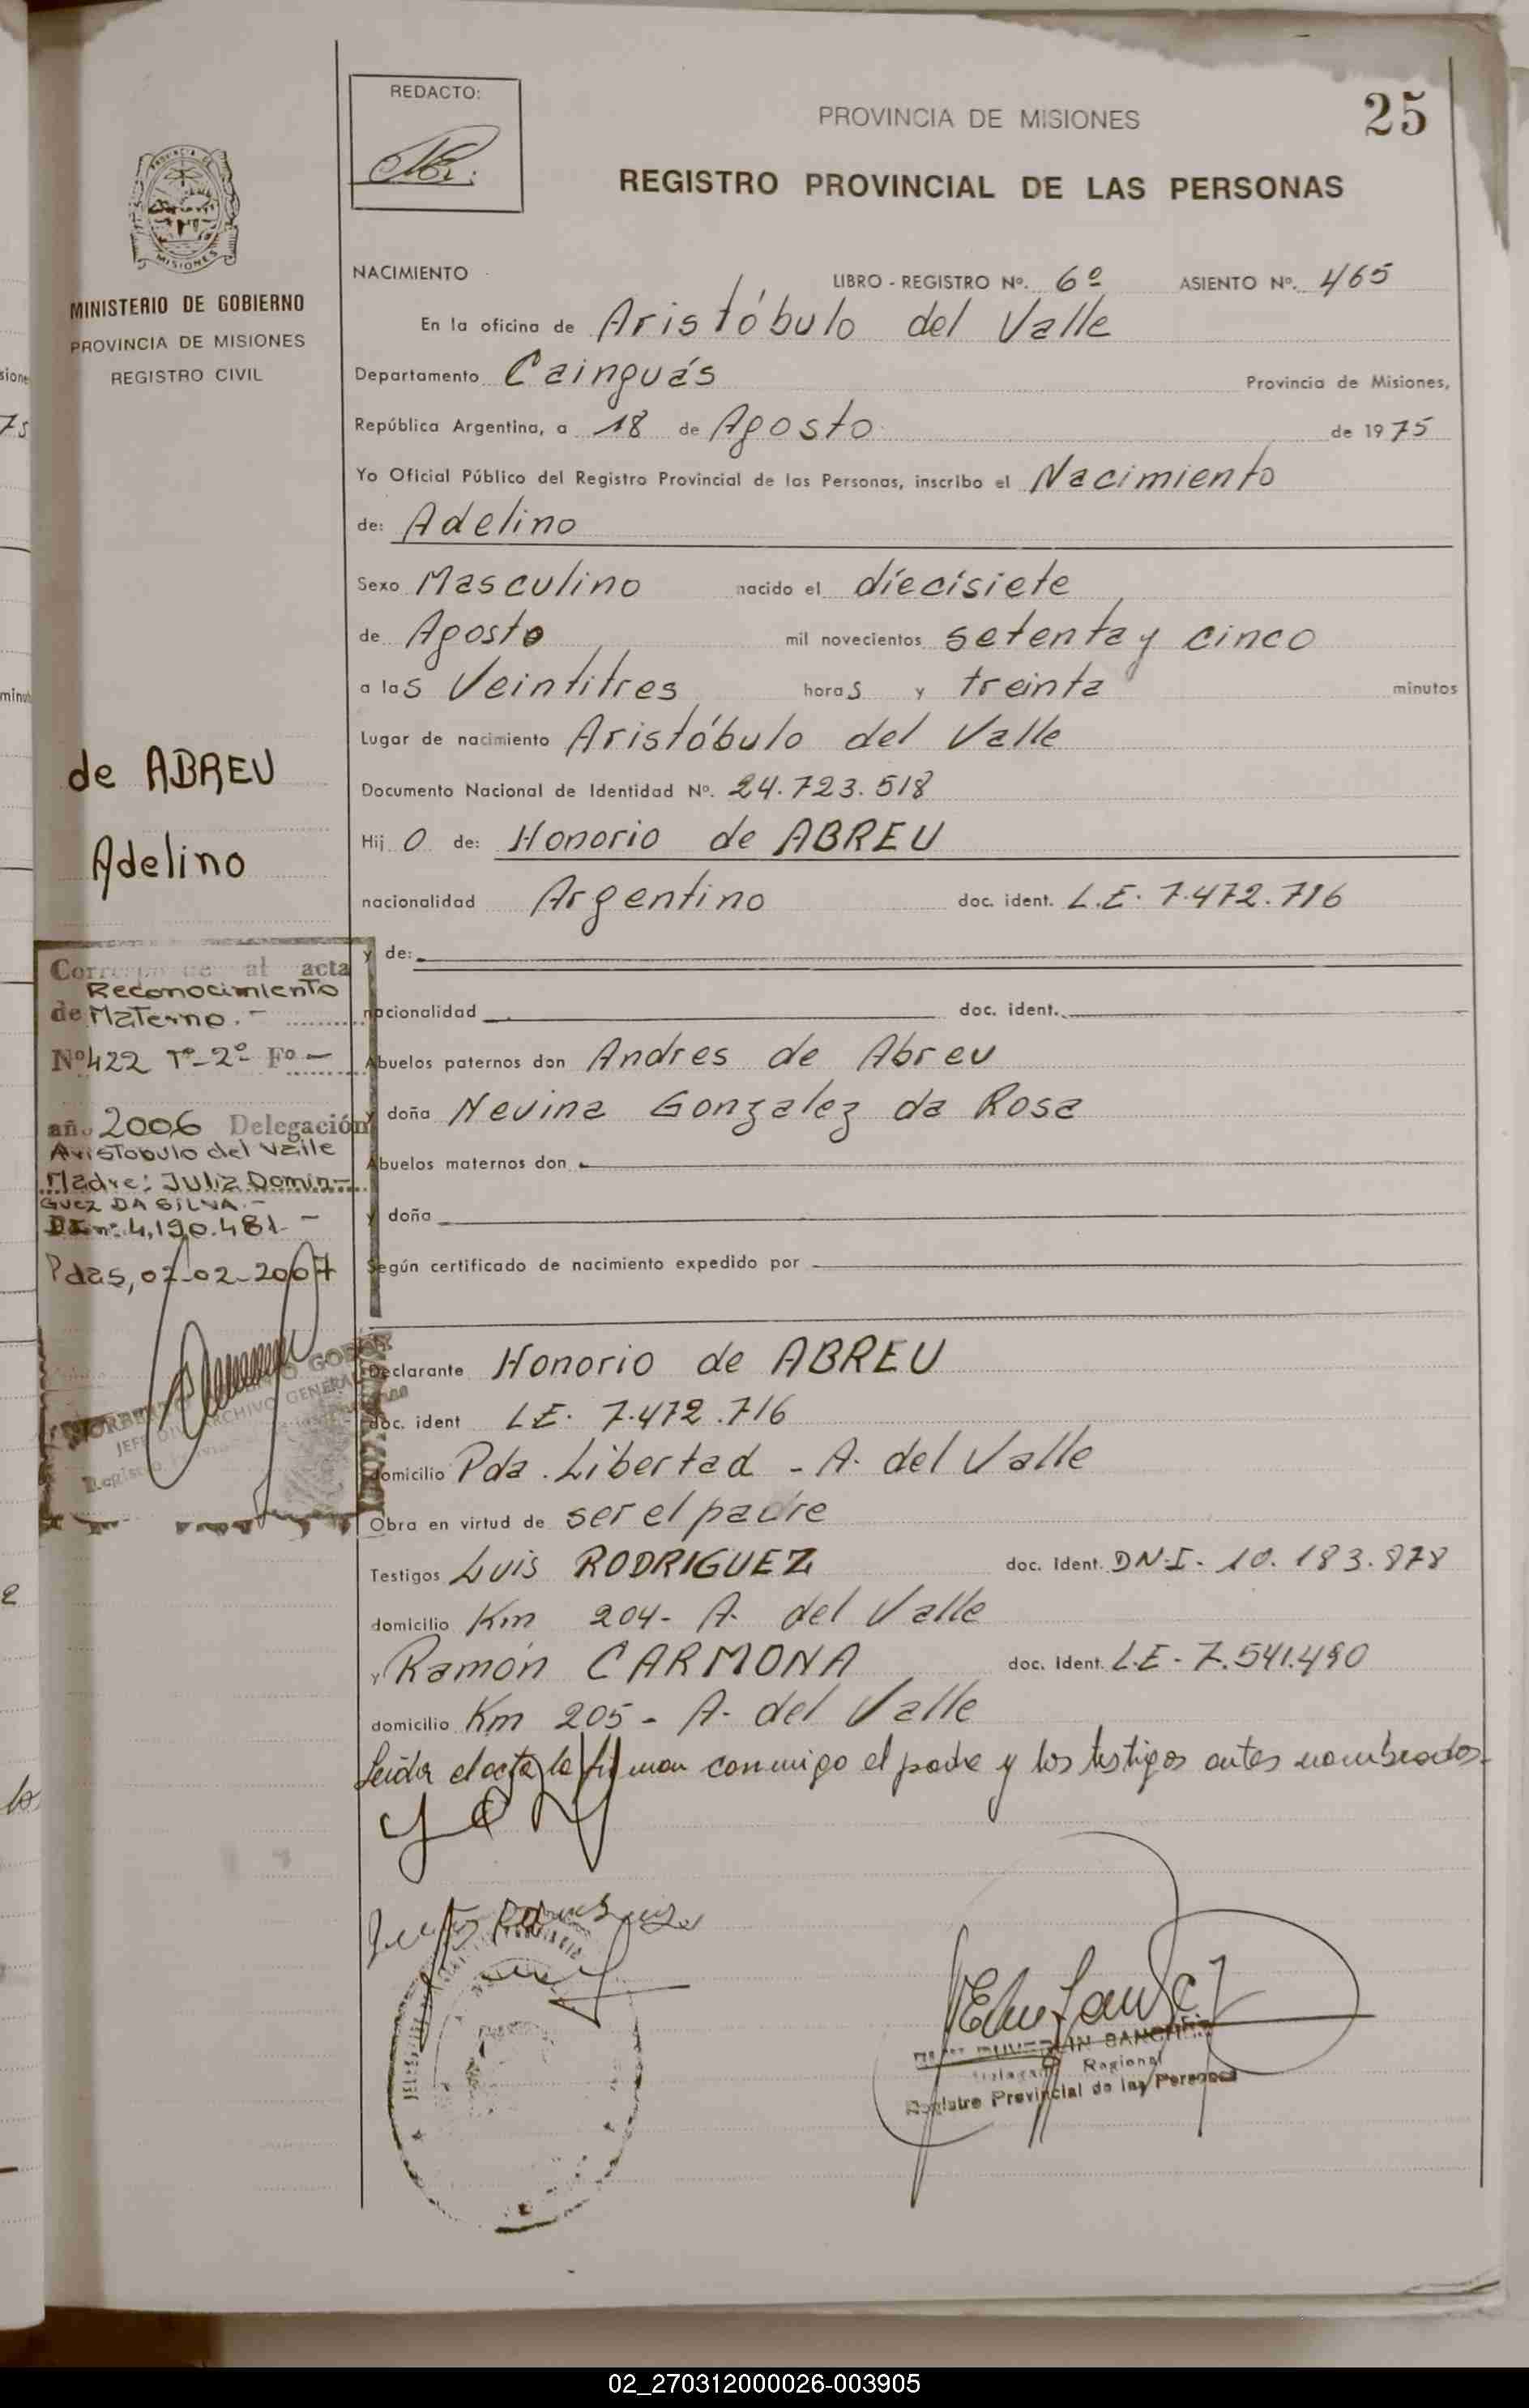 REDACTO:
PROVINCIA DE MISIONES
25
REGISTRO PROVINCIAL DE LAS PERSONAS
MISIONES
MINISTERIO DE GOBIERNO
PROVINCIA DE MISIONES
REGISTRO CIVIL
NACIMIENTO LIBRO - REGISTRO Nº. 6º ASIENTO Nº. 465
En la oficina de Aristóbulo del Valle
Departamento Cainguás Provincia de Misiones,
República Argentina, a 18 de Agosto de 1975
Yo Oficial Público del Registro Provincial de las Personas, inscribo el Nacimiento
de: Adelino
Sexo Masculino nacido el diecisiete
de Agosto mil novecientos setenta y cinco
a las Veintitres horas y treinta minutos
Lugar de nacimiento Aristóbulo del Valle
Documento Nacional de Identidad Nº. 24.723.518
Hij o de: Honorio de ABREU
nacionalidad Argentino doc. ident. L.E. 7.472.716
y de:
nacionalidad doc. ident.
Abuelos paternos don Andres de Abreu
y doña Nevina Gonzalez da Rosa
Abuelos maternos don
y doña
Según certificado de nacimiento expedido por
Declarante Honorio de ABREU
doc. ident L.E. 7.472.716
domicilio Pda. Libertad - A. del Valle
Obra en virtud de ser el padre
Testigos Luis RODRIGUEZ doc. Ident. D.N.I. 10.183.878
domicilio Km 204- A. del Valle
y Ramón CARMONA doc. Ident. L.E - 7.541.490
domicilio Km 205 - A. del Valle
Leída el acta, la firman conmigo el padre y los testigos antes nombrados.-
de ABREU
Adelino
Corresponde al acta
Reconocimiento
de Materno.-
Nº 422 Tº- 2º Fº -
año 2006 Delegación
Aristobulo del Valle
Madre: Julia Domin-
guez DA SILVA.-
DI nº 4.190.481 -
Pdas, 07-02-2007
JEFE DIV. ARCHIVO GENERAL
Regional
Registro Provincial de las Personas
02_270312000026-003905